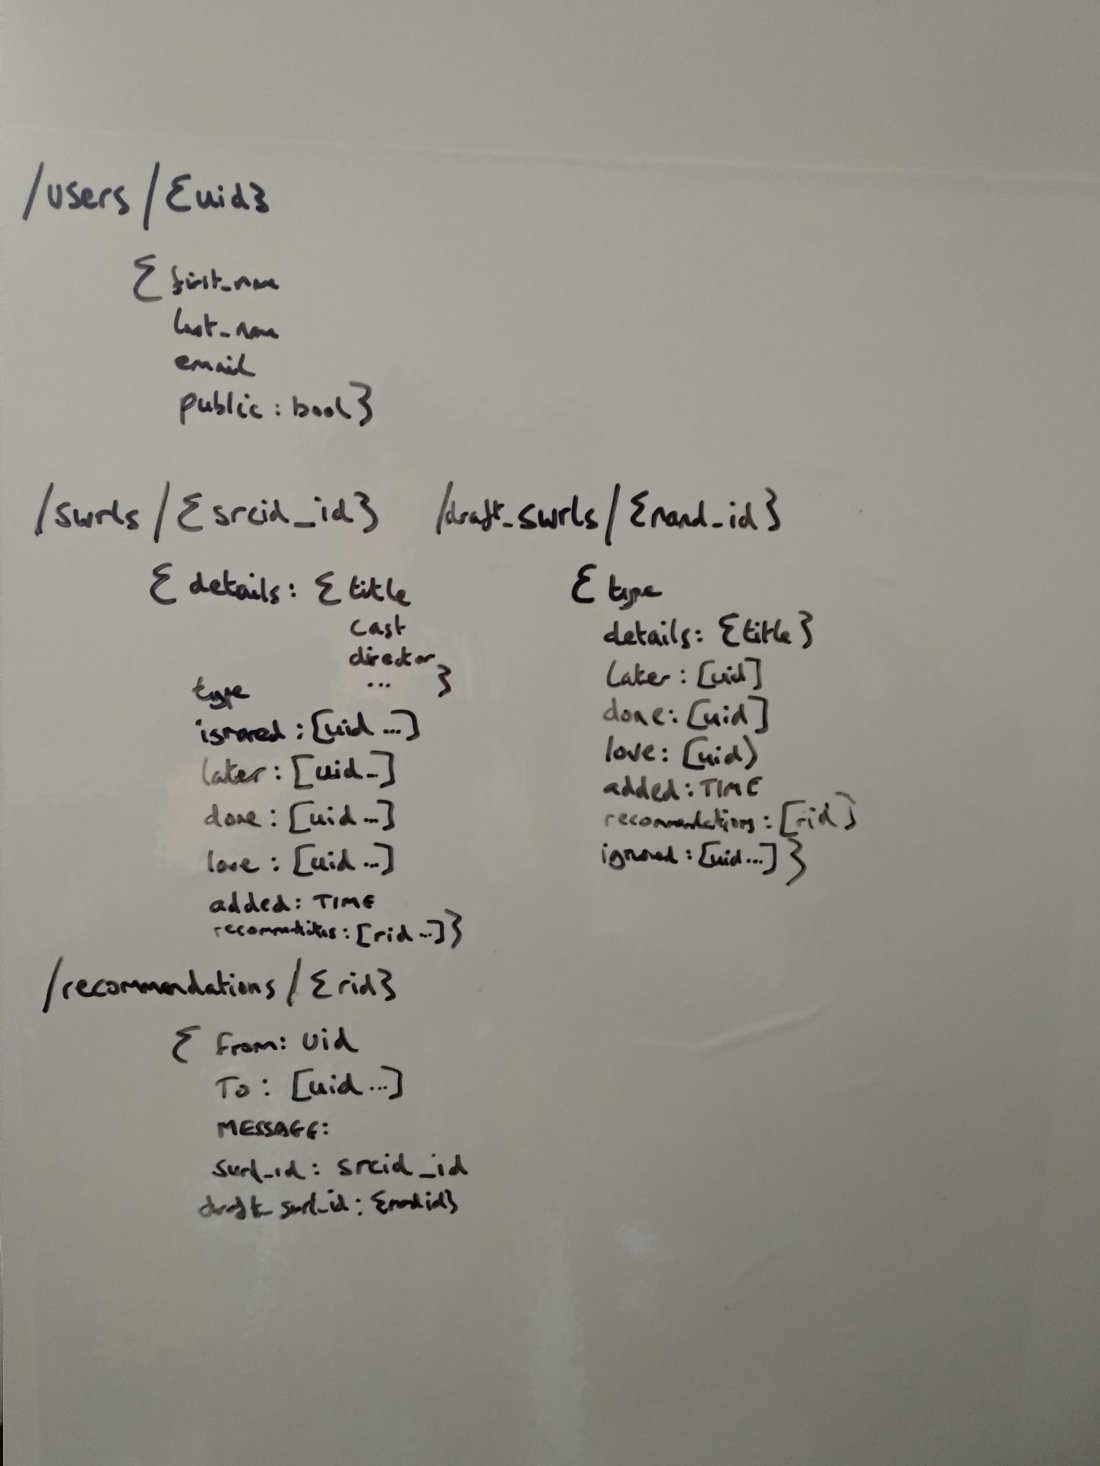 /users/{uid}
{ first_name
last_name
email
public : bool}
/swrls/{srcid_id}
{ details: { title
cast
director
... }
type
ignored : [uid ...]
later : [uid ..]
done : [uid ...]
love : [uid ...]
added: TIME
recommendations: [rid ...]}
/draft_swrls/{rand_id}
{ type
details: {title}
later : [uid]
done: [uid]
love: [uid]
added: TIME
recommendations : [rid]
ignored : [uid...] }
/recommendations/{rid}
{ from: uid
To : [uid ...]
MESSAGE:
swrl_id : srcid_id
draft_swrl_id: {randid}